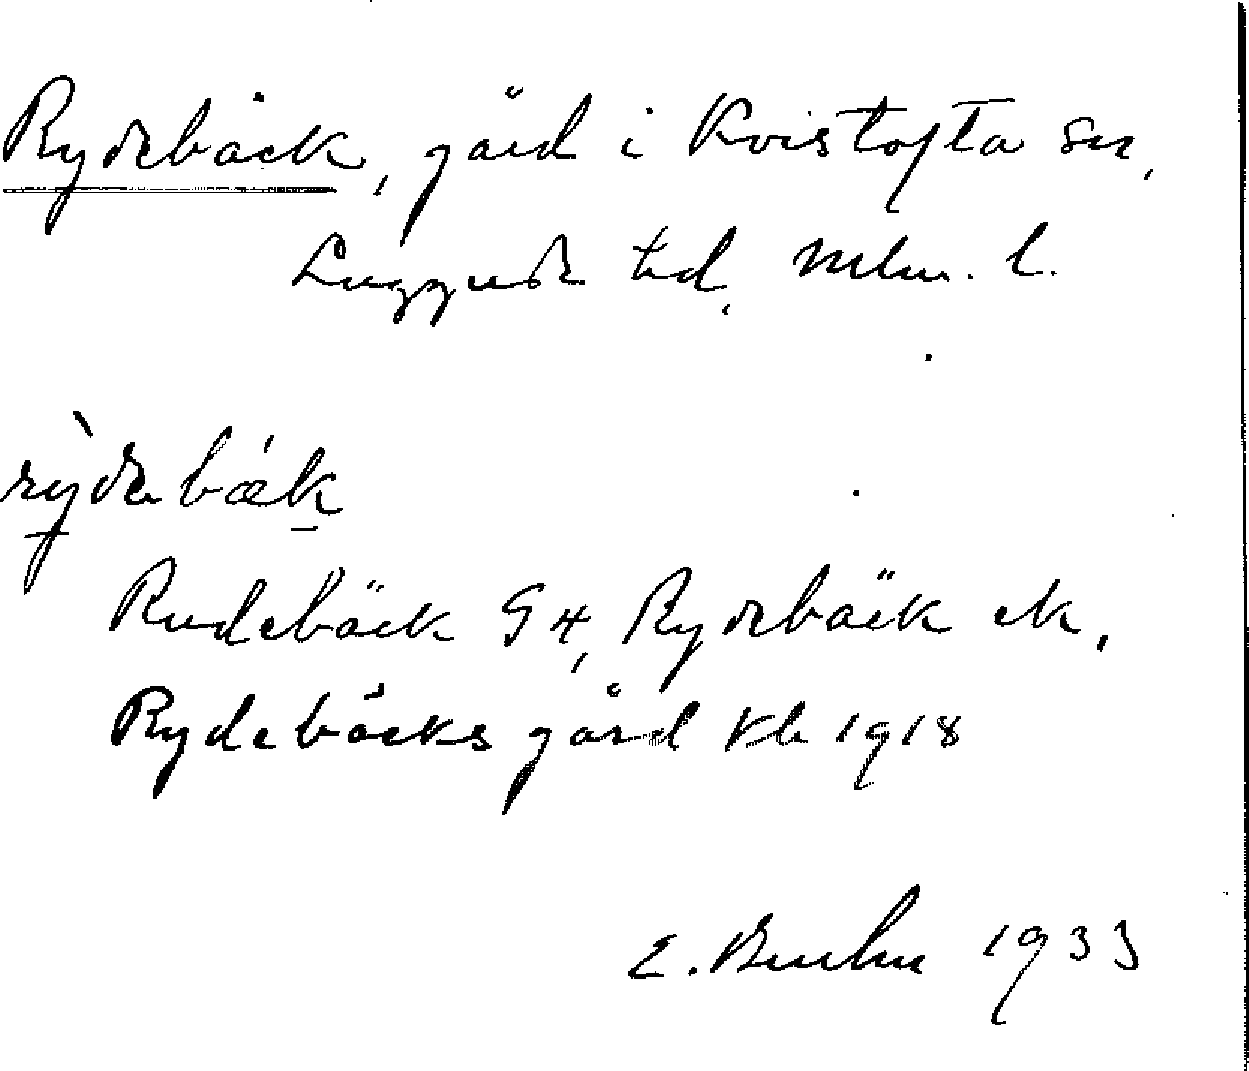 Rydebäck, gård i Kvistofta sn,
Luggude hd, Mlm. l.
rỳdebæ´k
Rudebäck GK, Rydebäck ek,
Rydebäcks gård kb 1918
E. Bruhn 1933